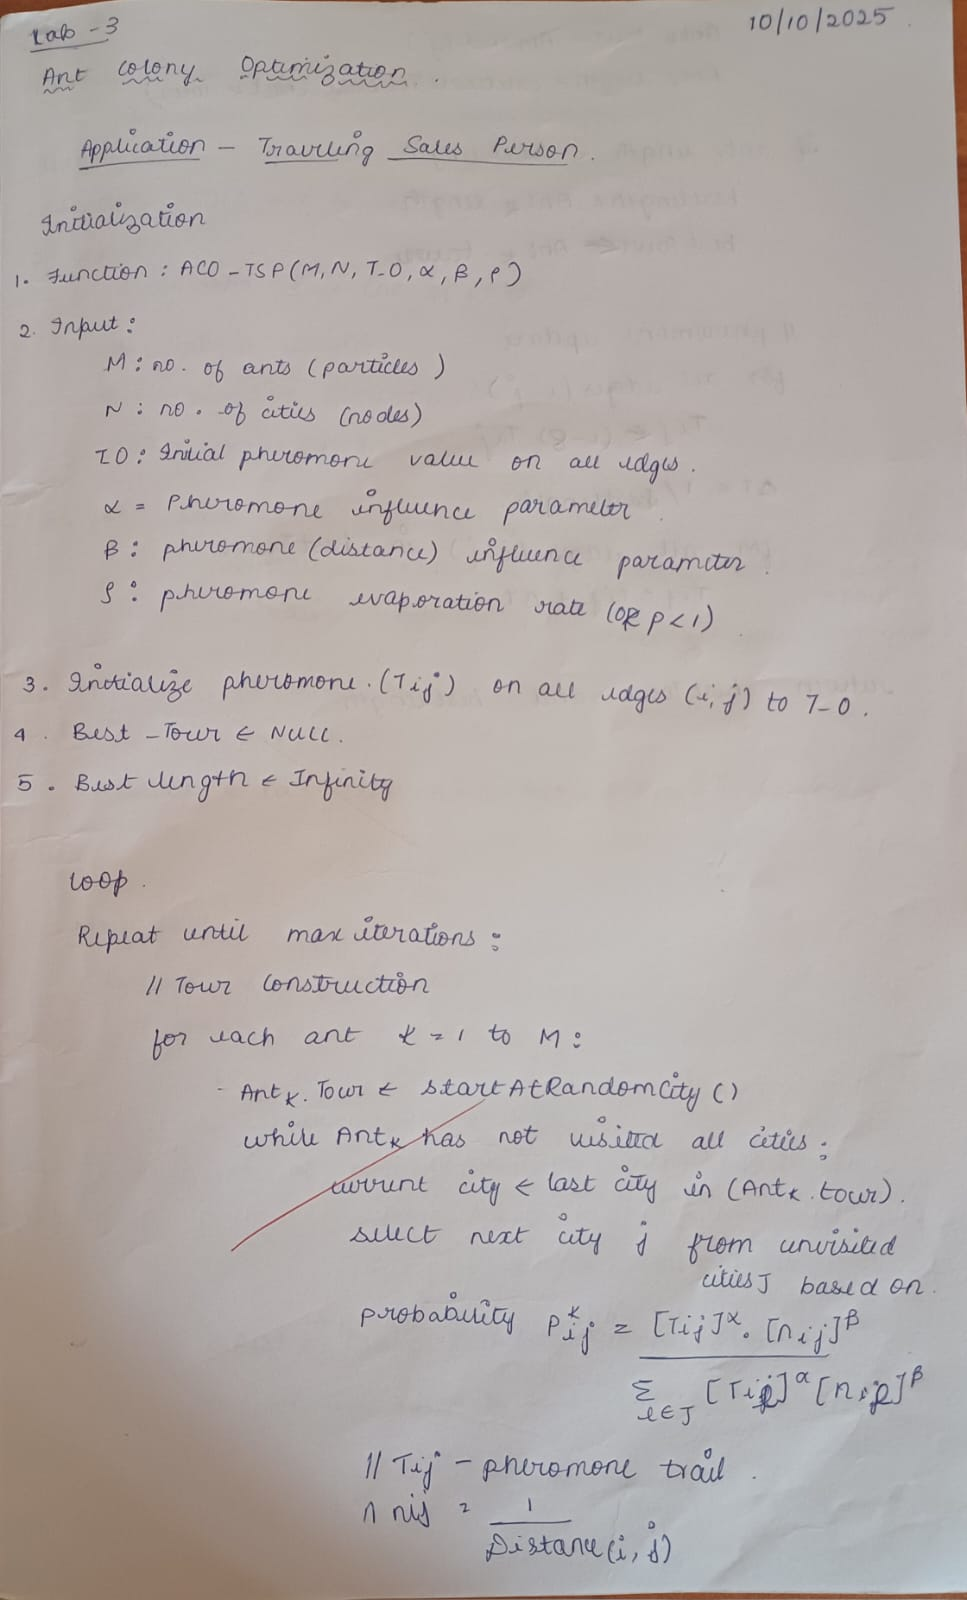 Lab - 3
10/10/2025
Ant Colony Optimization.
Application - Traveling Sales Person.
Initialization
1. Function : ACO-TSP(M, N, T-0, α, β, ρ)
2. Input :
M : no. of ants (particles)
N : no. of cities (nodes)
T0 : Initial pheromone value on all edges.
α = Pheromone influence parameter
β : pheromone (distance) influence parameter.
ρ : pheromone evaporation rate (0<ρ<1)
3. Initialize pheromone (Tij) on all edges (i, j) to T-0.
4. Best - Tour ← NULL.
5. Best length ← Infinity
Loop.
Repeat until max iterations :
// Tour construction
for each ant k = 1 to M :
- Antk. Tour ← startAtRandomCity ()
while Antk has not visited all cities :
current city ← last city in (Antk. tour).
select next city j from unvisited
cities J based on.
probability P^k_ij = [Tij]^α . [nij]^β
Σ l∈J [Til]^α [nil]^β
// Tij - pheromone trail.
nij = 1
Distance (i, j)